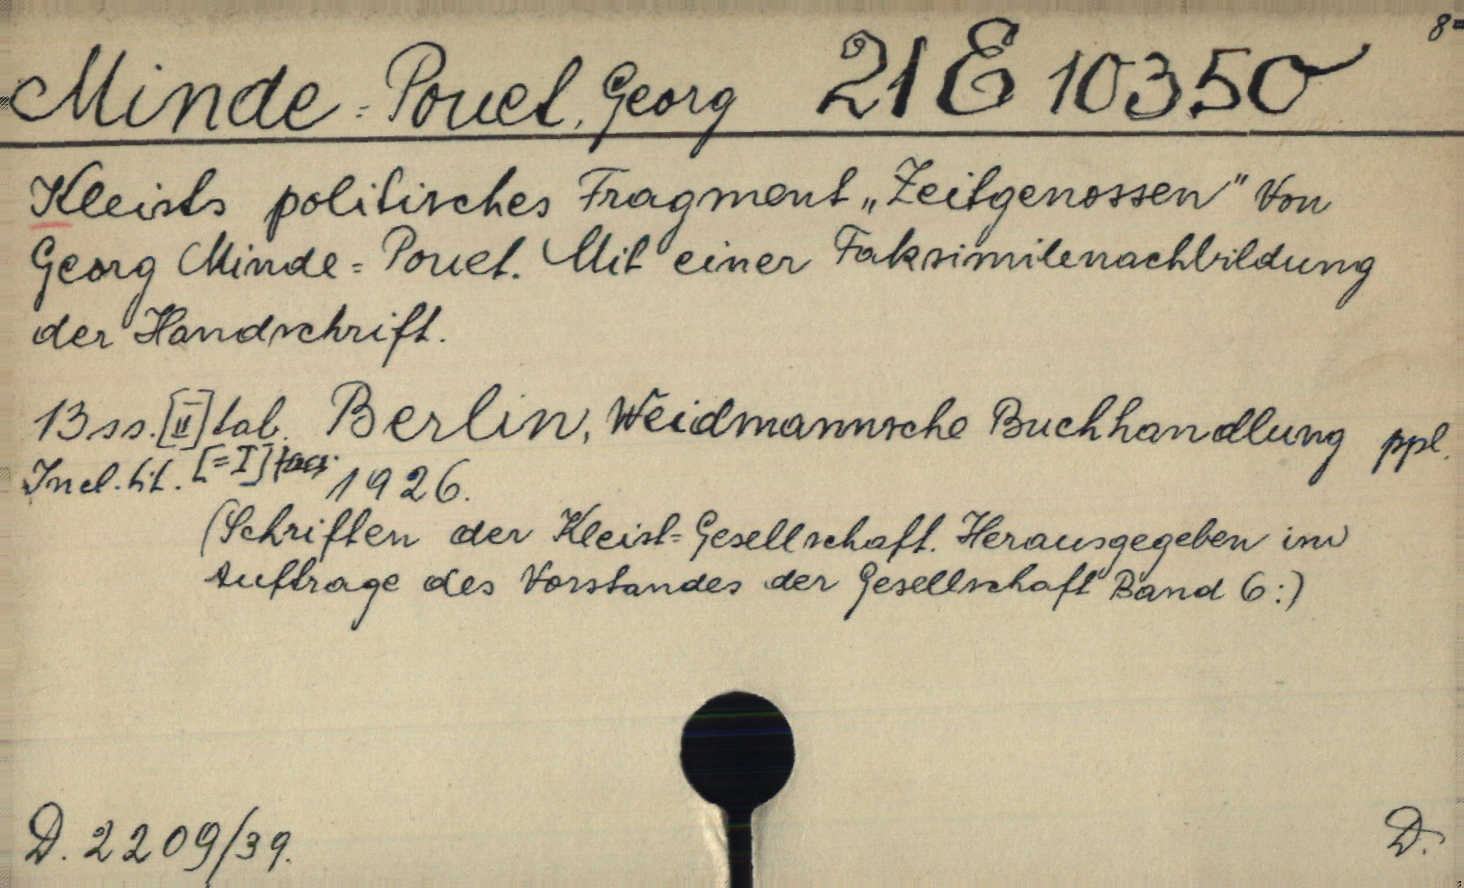 8°
Minde=Pouet, Georg 21 E 10350
Kleists politisches Fragment „Zeitgenossen" Von
Georg Minde=Pouet. Mit einer Faksimilenachbildung
der Handschrift.
13 ss. [II] tab. Berlin, Weidmannsche Buchhandlung ppl.
Incl. tit. [=I] 1926.
(Schriften der Kleist=Gesellschaft. Herausgegeben im
Auftrage des Vorstandes der Gesellschaft Band 6:)
D. 2209/39. D.